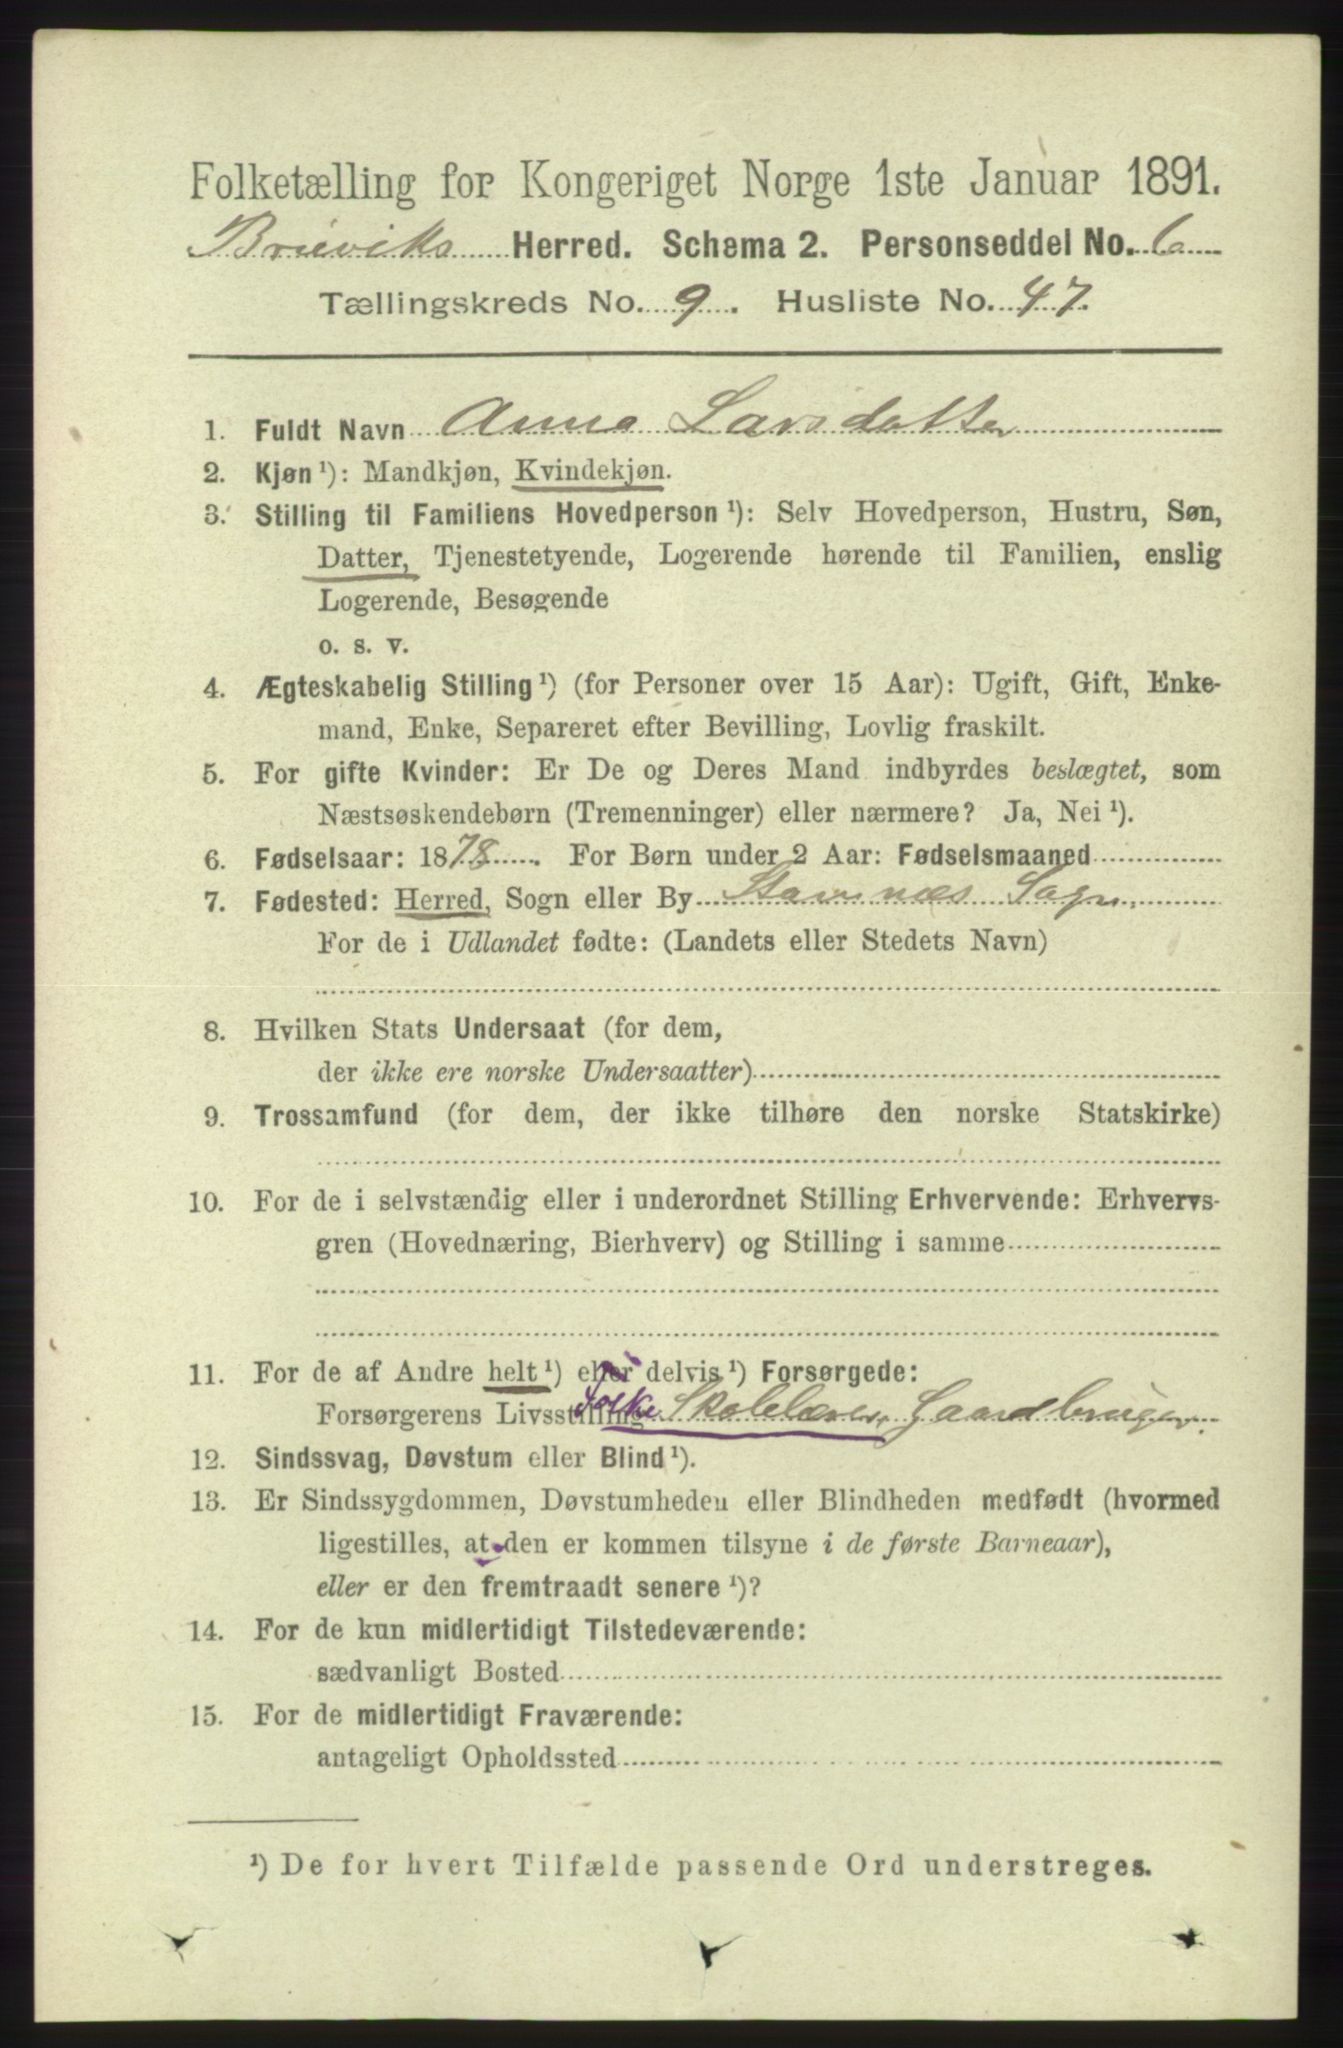 Folketælling for Kongeriget Norge 1ste Januar 1891.
Bruviks Herred. Schema 2. Personseddel No. 6
Tællingskreds No. 9. Husliste No. 47.
1. Fuldt Navn Anna Larsdatter
2. Kjøn ¹): Mandkjøn, Kvindekjøn.
3. Stilling til Familiens Hovedperson ¹): Selv Hovedperson, Hustru, Søn,
Datter, Tjenestetyende, Logerende hørende til Familien, enslig
Logerende, Besøgende
o. s. v.
4. Ægteskabelig Stilling ¹) (for Personer over 15 Aar): Ugift, Gift, Enke-
mand, Enke, Separeret efter Bevilling, Lovlig fraskilt.
5. For gifte Kvinder: Er De og Deres Mand indbyrdes beslægtet, som
Næstsøskendebørn (Tremenninger) eller nærmere? Ja, Nei ¹).
6. Fødselsaar: 1878. For Børn under 2 Aar: Fødselsmaaned
7. Fødested: Herred, Sogn eller By Stamnæs Sogn
For de i Udlandet fødte: (Landets eller Stedets Navn)
8. Hvilken Stats Undersaat (for dem,
der ikke ere norske Undersaatter)
9. Trossamfund (for dem, der ikke tilhøre den norske Statskirke)
10. For de i selvstændig eller i underordnet Stilling Erhvervende: Erhvervs-
gren (Hovednæring, Bierhverv) og Stilling i samme
11. For de af Andre helt ¹) eller delvis ¹) Forsørgede:
Forsørgerens Livsstilling Folke Skolelærer, Gaardbruger.
12. Sindssvag, Døvstum eller Blind ¹).
13. Er Sindssygdommen, Døvstumheden eller Blindheden medfødt (hvormed
ligestilles, at den er kommen tilsyne i de første Barneaar),
eller er den fremtraadt senere ¹)?
14. For de kun midlertidigt Tilstedeværende:
sædvanligt Bosted
15. For de midlertidigt Fraværende:
antageligt Opholdssted
¹) De for hvert Tilfælde passende Ord understreges.